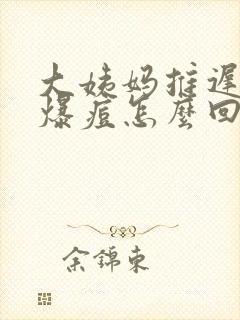 大姨妈推迟
爆痘怎麼回
余錦東